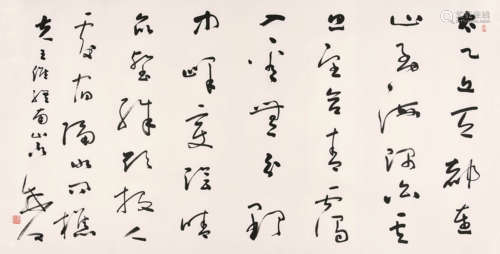 太乙近天都連
山到海隅白云
回望合青靄
入看無分野
中峰變陰晴
众壑殊欲投人
處宿隔水问樵
夫王維終南山